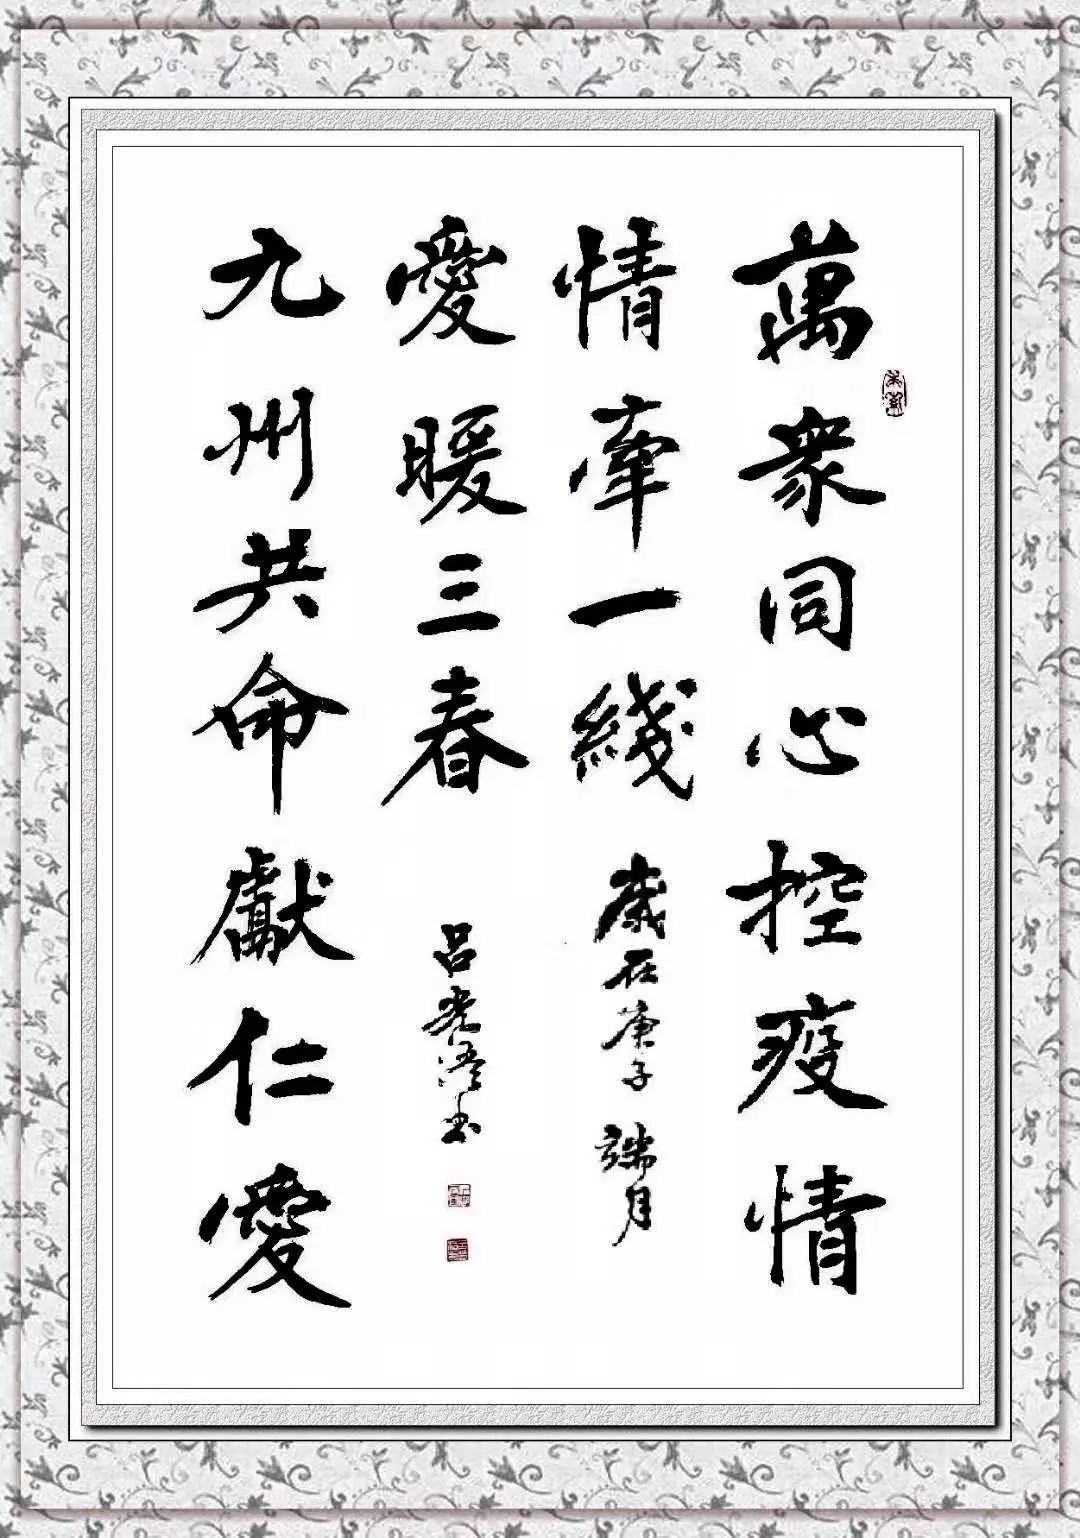 萬衆同心控疫情
情牽一綫 歲在庚子 端月
愛暖三春 呂光書
九州共命獻仁愛